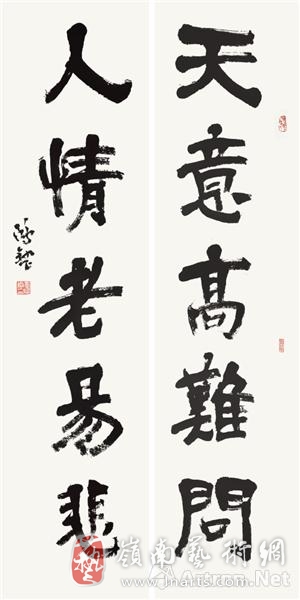 天意高難問
人情老易悲
嶺南藝術網
www.lnarts.com
Artron.Net